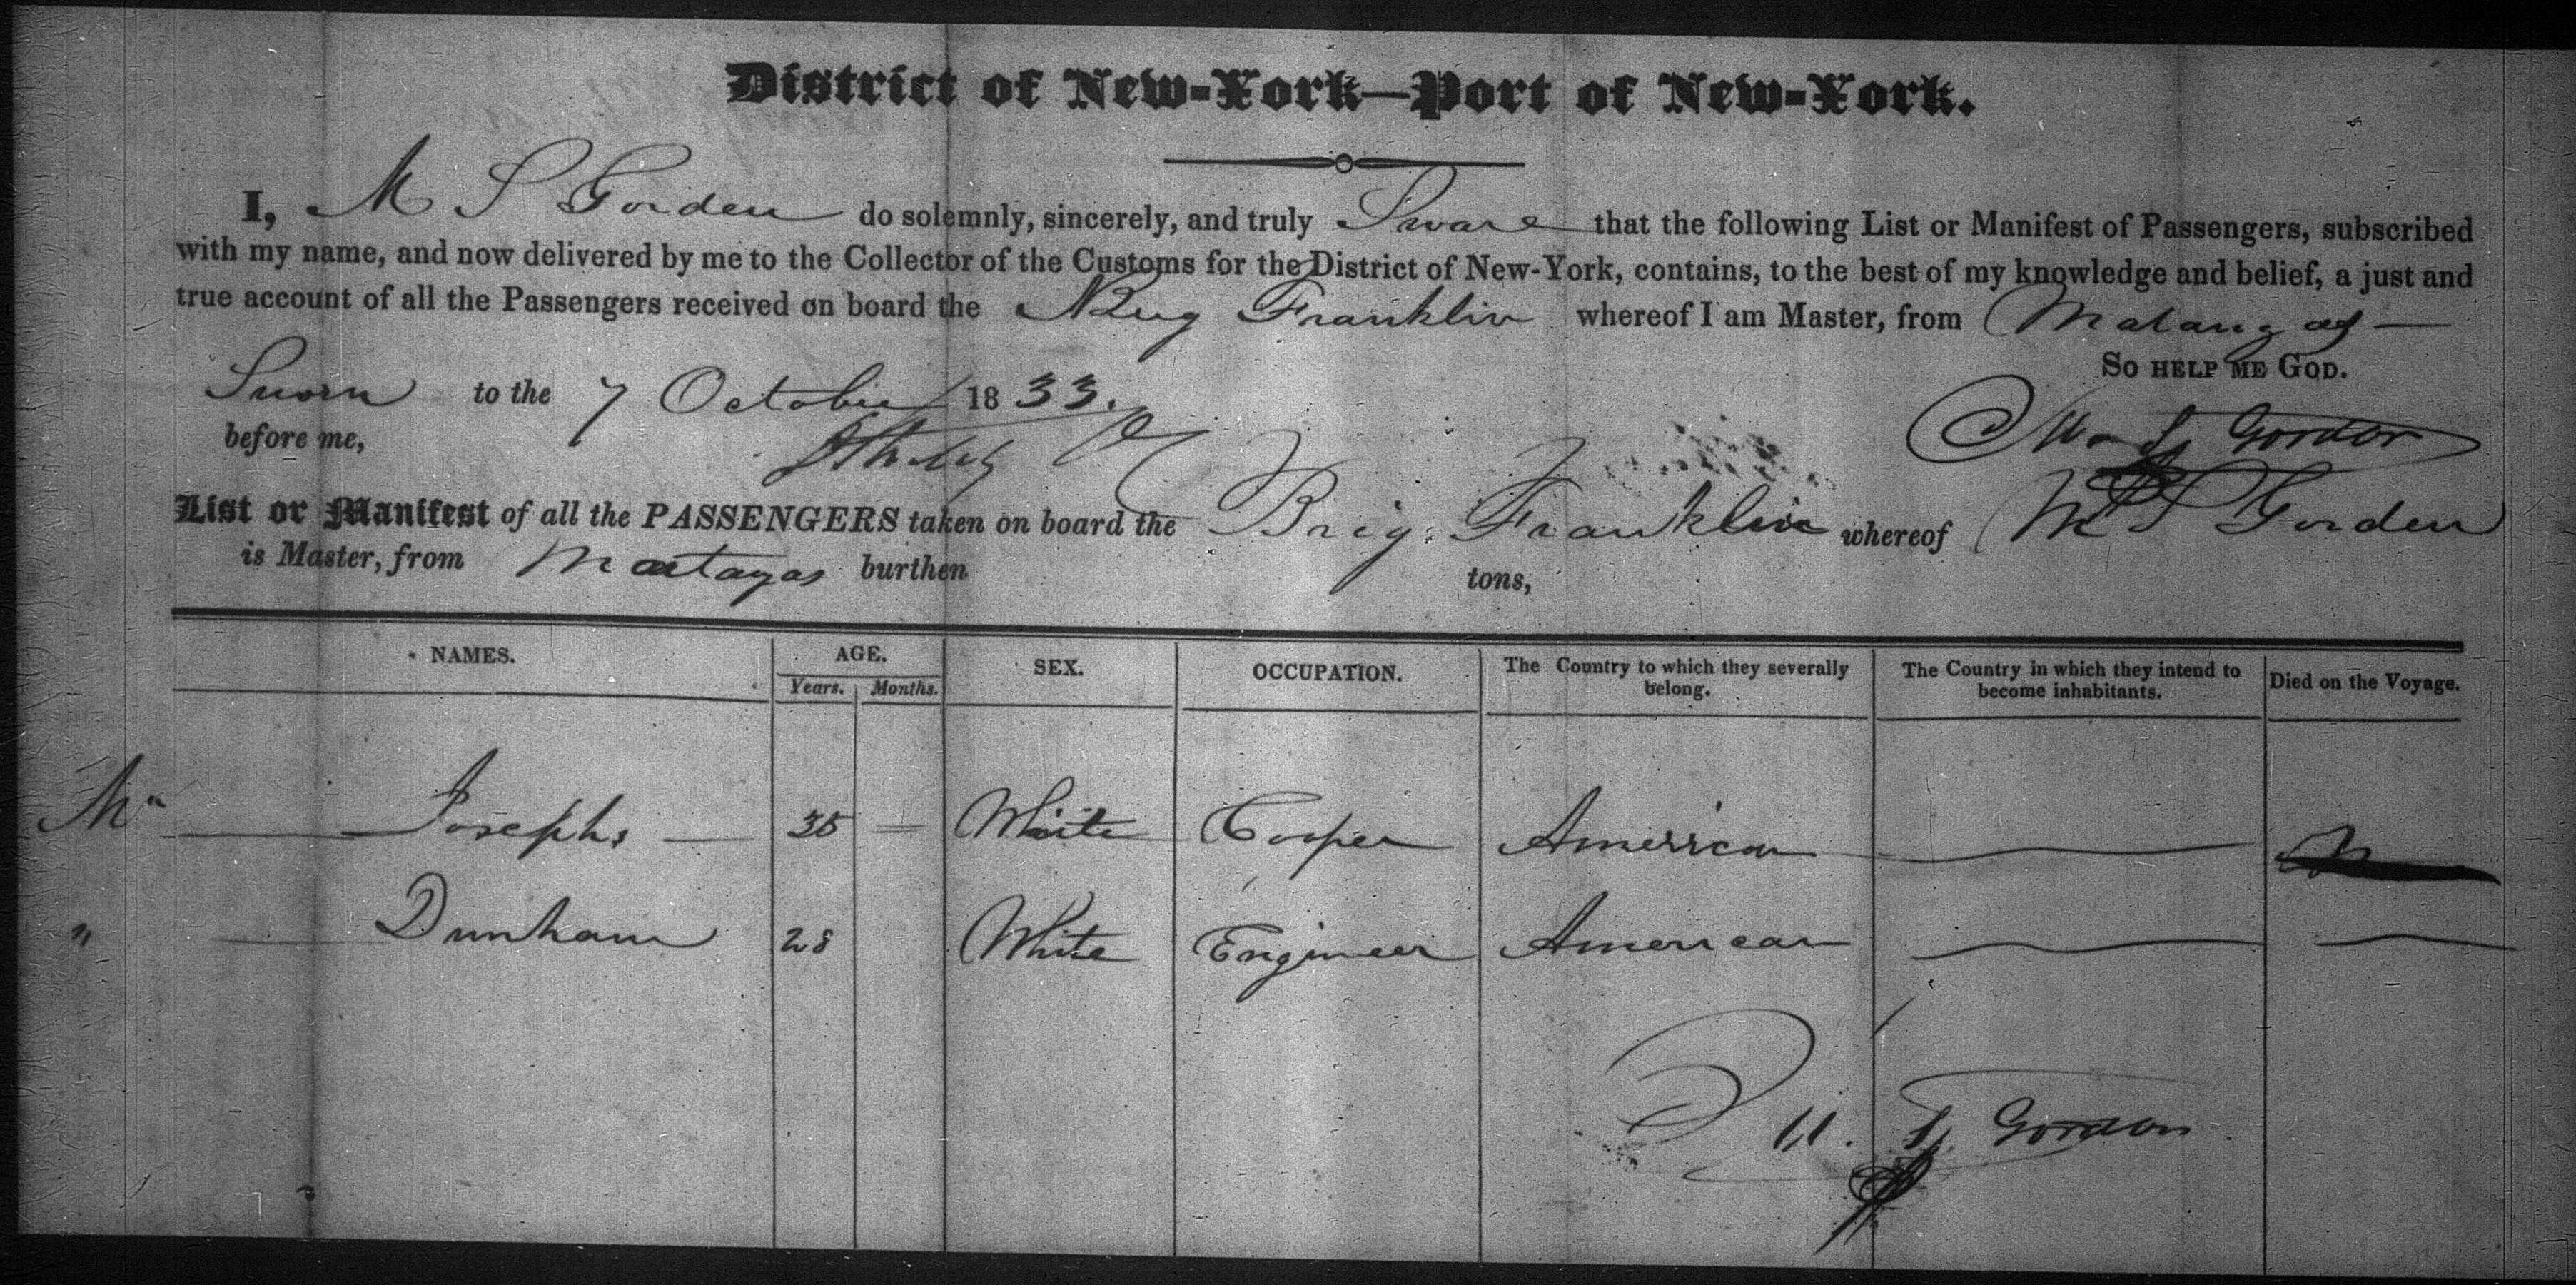 District of New-York—Port of New-York.
I, M S Gorden do solemnly, sincerely, and truly Sware that the following List or Manifest of Passengers, subscribed
with my name, and now delivered by me to the Collector of the Customs for the District of New-York, contains, to the best of my knowledge and belief, a just and
true account of all the Passengers received on board the Brig Franklin whereof I am Master, from Matanzas
So HELP ME GOD.
Sworn to the 7 October 1833.
before me,
M. S. Gordon
List or Manifest of all the PASSENGERS taken on board the Brig. Franklin whereof M S Gorden
is Master, from Mantazas burthen tons,
NAMES. AGE. SEX. OCCUPATION. The Country to which they severally belong. The Country in which they intend to become inhabitants. Died on the Voyage.
Years. Months.
Mr Josephs 35 White Cooper American
" Dunham 28 White Engineer American
M. S. Gordon